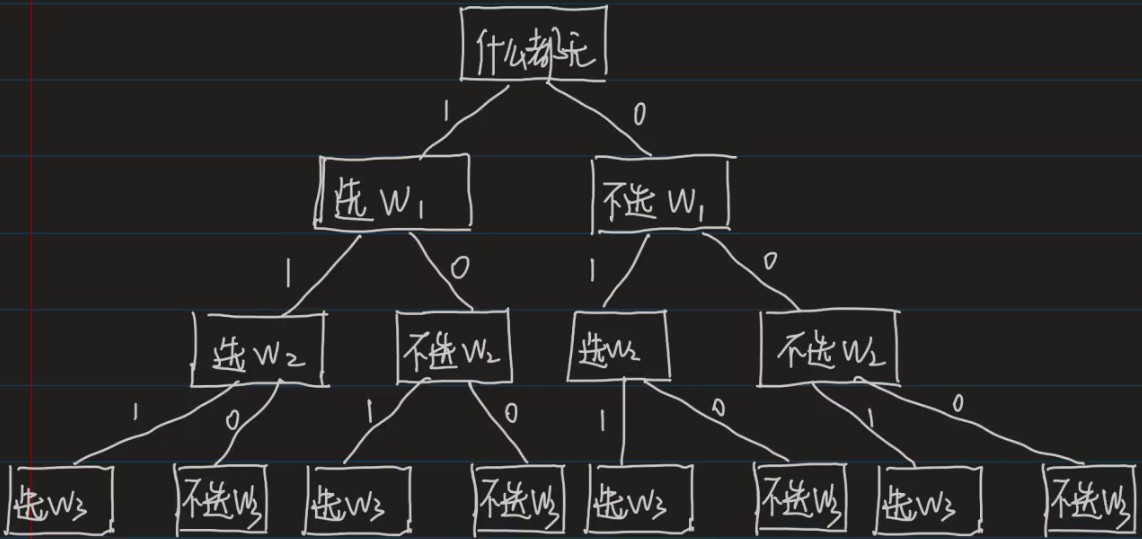 什么都无
1 0
选 W1 不选 W1
1 0 1 0
选 W2 不选 W2 选 W2 不选 W2
1 0 1 0 1 0 1 0
选 W3 不选 W3 选 W3 不选 W3 选 W3 不选 W3 选 W3 不选 W3